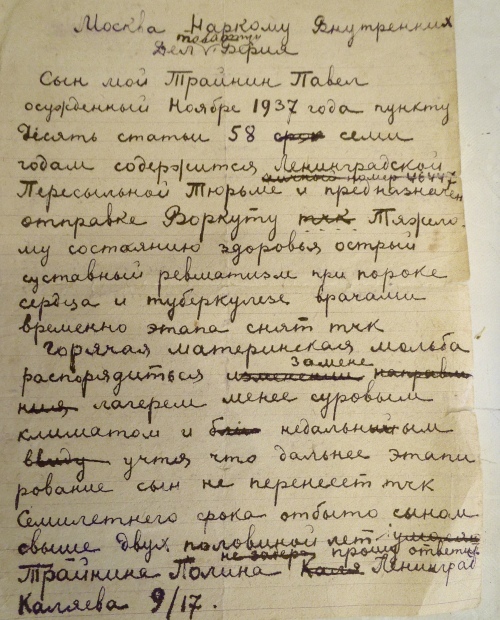 Москва Наркому Внутренних
товарищу
Дел Берия
Сын мой Трайнин Павел
осужденный Ноябре 1937 года пункту
Десять статьи 58 срок семи
годам содержится Ленинградской
личный номер 48447
Пересыльной Тюрьме и предназначен
отправке Воркуту тчк Тяжело
му состоянию здоровья острый
суставный ревматизм при пороке
сердца и туберкулезе врачами
временно этапа снят тчк
Горячая материнская мольба
замене
распорядиться изменении направле
ния лагерем менее суровым
климатом и недальным
ввиду учтя что дальнее этапи
рование сын не перенесет тчк
Семилетнего срока отбыто сыном
свыше двух половиной лет умоляю
прошу ответить
Трайнина Полина Каля Ленинград
Каляева 9/17.